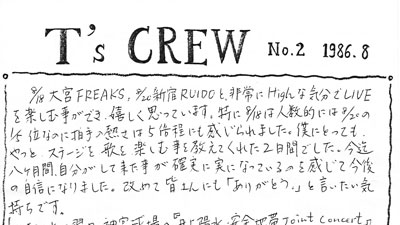 T's CREW No.2 1986.8
8/18 大宮FREAKS, 8/20新宿RUIDOと、非常にHighな気分でLIVE
を楽しむ事ができ、嬉しく思っています。特に8/18は人数的には8/20の
位なのに相手の熱さは5倍程にも感じられました。僕にとっても、
やっとステージを、歌を楽しむ事を教えてくれた2日間でした。今迄
八ヶ月間、自分がして来た事が確実に実になっているのを感じて今後
の自信になりました。改めて皆さんにも「ありがとう。」と言いたい気
持ちです。
井上陽水・安全地帯 Joint Concert